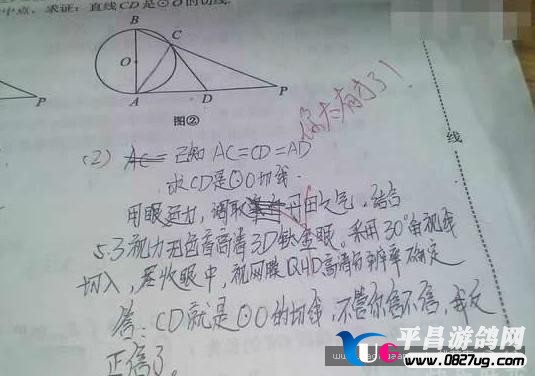 中点，求证：直线CD是⊙O的切线.
B
C
O
A
D
P
P
图②
你太有才了！
线
(2) AC= 已知 AC=CD=AD
求CD是⊙O切线.
用眼运力，调取丹田之气，结合
5.3视力无色盲高清3D钛金眼。采用30°角视线
切入，聚收眼中，视网膜QHD高清分辨率确定
答：CD就是⊙O的切线，不管你信不信，我反
正信了。
平昌游鸽网
www.0827ug.com